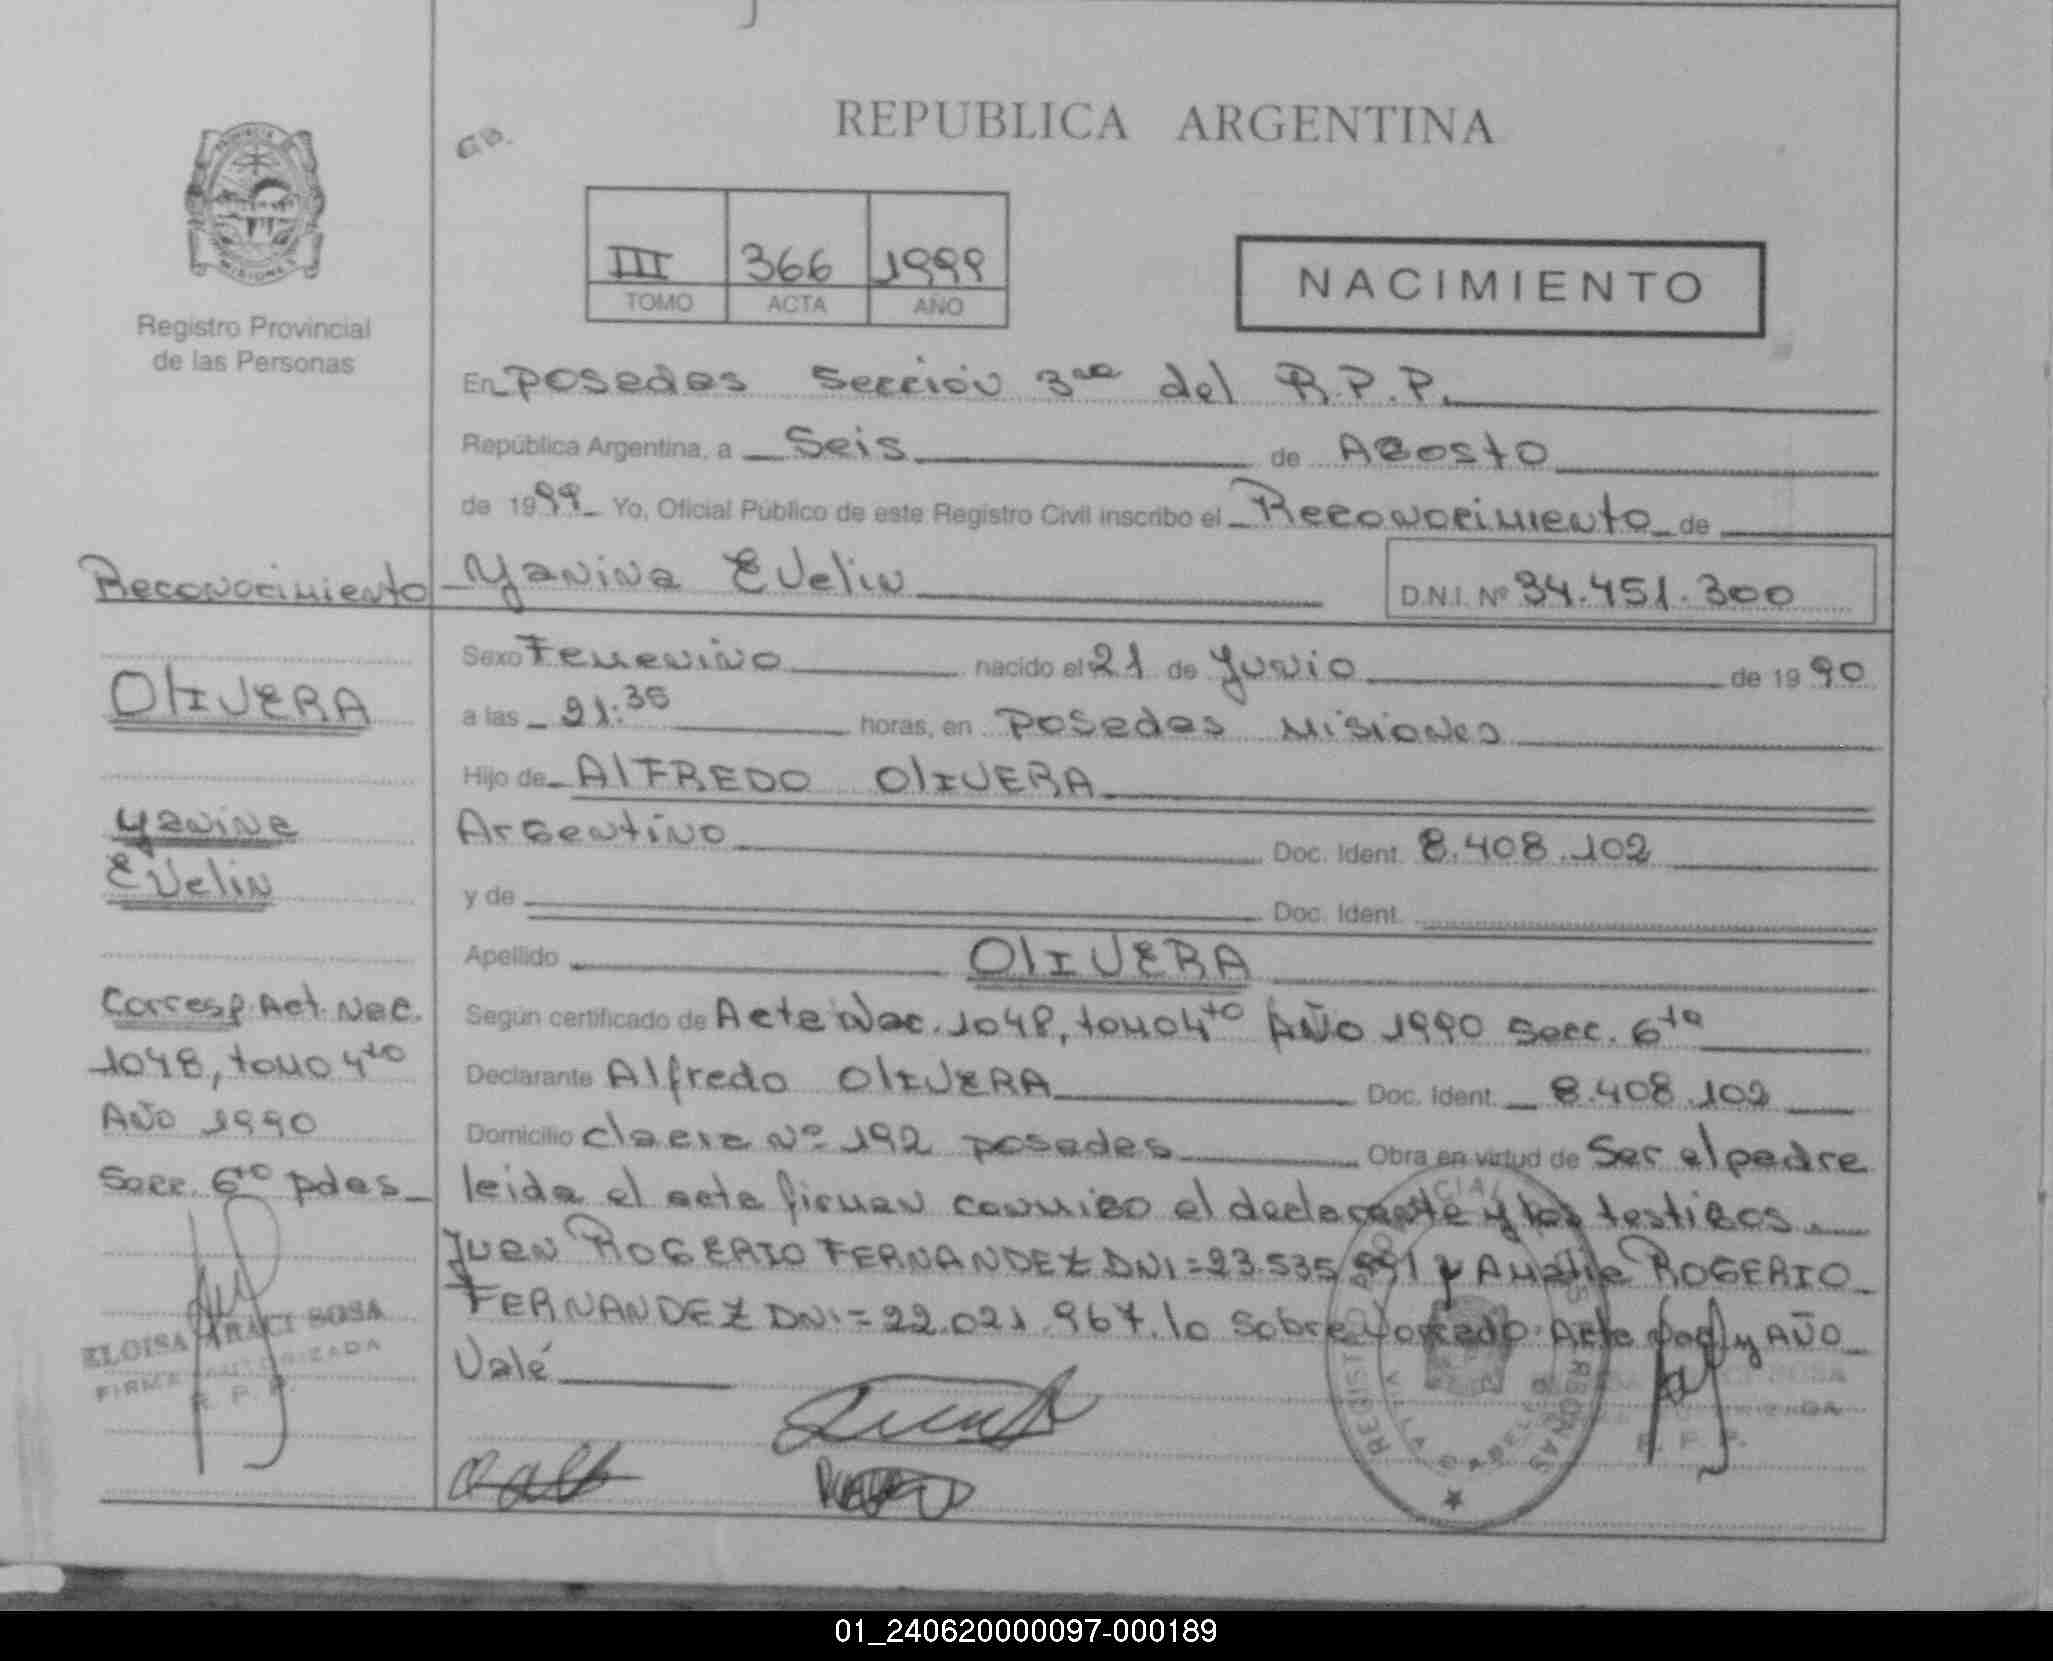 REPUBLICA ARGENTINA
GB.
III 366 1999
TOMO ACTA AÑO
NACIMIENTO
Registro Provincial
de las Personas
En Posadas Sección 3ra del R.P.P.
República Argentina, a Seis de Agosto
de 1999 Yo, Oficial Público de este Registro Civil inscribo el Reconocimiento de
Yanina Evelin D.N.I. Nº 34.451.300
Sexo Femenino nacido el 21 de Junio de 1990
a las 21:35 horas, en Posadas Misiones
Hijo de AlFREDO OlIVERA
Argentino Doc. Ident. 8.408.102
y de Doc. Ident.
Apellido OlIVERA
Según certificado de Acta Nac. 1048, tomo 4to Año 1990 Secc. 6ta
Declarante Alfredo OlIVERA Doc. Ident. 8.408.102
Domicilio Nº 192 posadas Obra en virtud de Ser el padre
leida el acta firman conmigo el declarante y los testigos
Juan ROGERIO FERNANDEZ DNI=23.535. y Amalia ROGERIO
FERNANDEZ DNI=22.021.967. lo Sobre Acta Nac y AÑO
Valé
Reconocimiento
OlIVERA
Yanina
Evelin
Corresp. Act. Nac.
1048, tomo 4to
Año 1990
Secc. 6to pdas
ELOISA ARACI SOSA
FIRMA AUTORIZADA
R. P. P.
REGISTRO PROVINCIAL DE LAS PERSONAS
VILLA CABELLO
SOSA
AUTORIZADA
R. P. P.
01_240620000097-000189